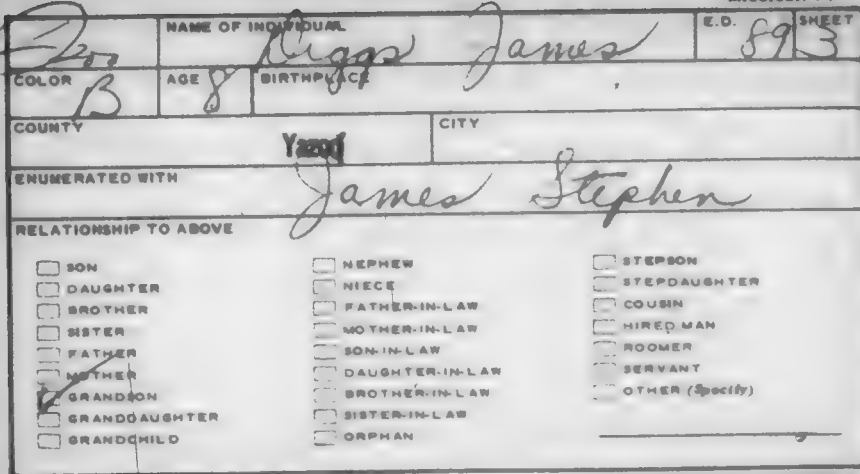 NAME OF INDIVIDUAL Riggs James E.D. 89 SHEET 3
COLOR B AGE 8 BIRTHPLACE
COUNTY Yazoo CITY
ENUMERATED WITH James Stephen
RELATIONSHIP TO ABOVE
SON
DAUGHTER
BROTHER
SISTER
FATHER
MOTHER
GRANDSON
GRANDDAUGHTER
GRANDCHILD
NEPHEW
NIECE
FATHER-IN-LAW
MOTHER-IN-LAW
SON-IN-LAW
DAUGHTER-IN-LAW
BROTHER-IN-LAW
SISTER-IN-LAW
ORPHAN
STEPSON
STEPDAUGHTER
COUSIN
HIRED MAN
ROOMER
SERVANT
OTHER (Specify)